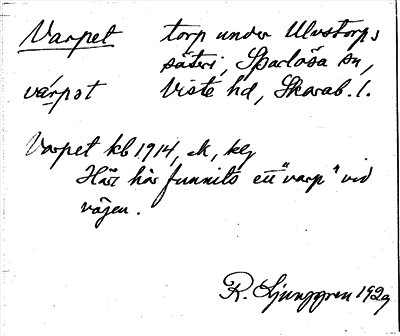 Varpet torp under Ulvstorps
säteri, Sparlösa sn,
várpet Viste hd, Skarab. l.
Varpet kb 1914, ek, kg
Här har funnits ett "varp" vid
vägen.
R. Ljunggren 1929